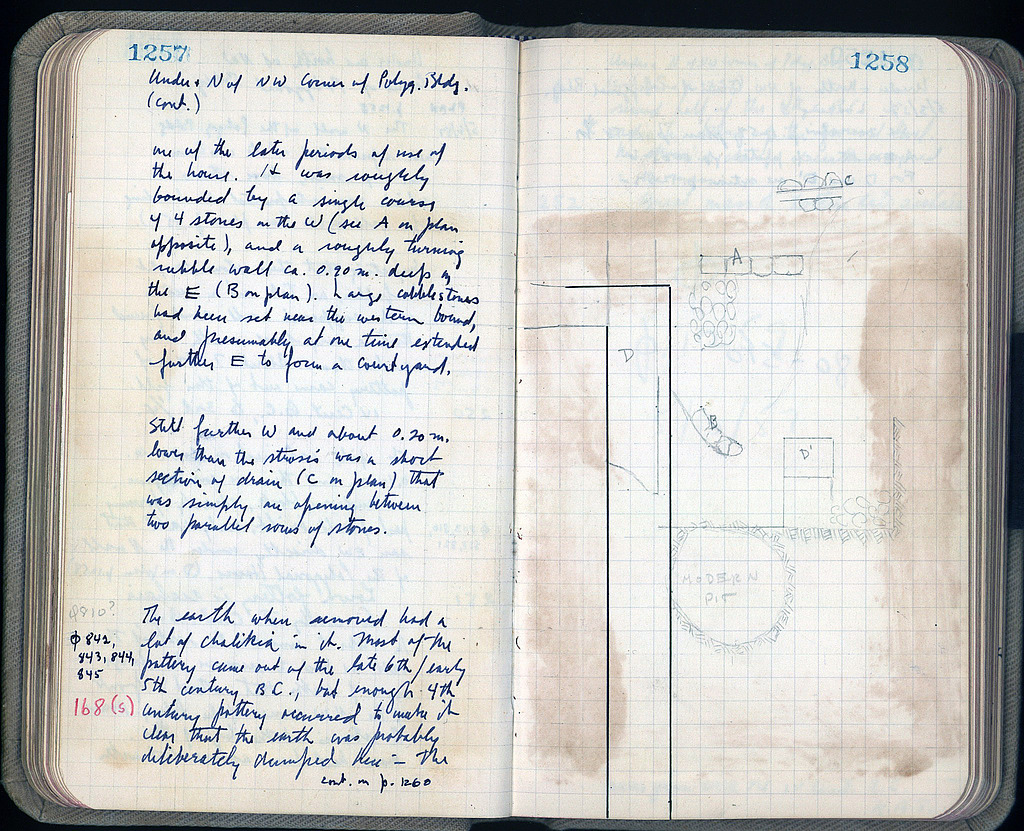 1257
Under & N of NW Corner of Polyg. Bldg.
(cont.)
one of the later periods of use of
the house. It was roughly
bounded by a single course
of 4 stones on the W (see A on plan
opposite), and a roughly turning
rubble wall ca. 0.20 m. deep on
the E (B on plan). Large cobblestones
had been set near the western bound,
and presumably at one time extended
further E to form a courtyard.
Still further W and about 0.20 m.
lower than the strosis was a short
section of drain (C on plan) that
was simply an opening between
two parallel rows of stones.
φ810?
φ 842,
843, 844,
845
168 (s)
The earth when removed had a
lot of chalikia in it. Most of the
pottery came out of the late 6th/early
5th century B.C., but enough 4th
century pottery occurred to make it
clear that the earth was probably
deliberately dumped here – The
cont. on p. 1260
1258
C
A
D
B
D'
MODERN
PIT